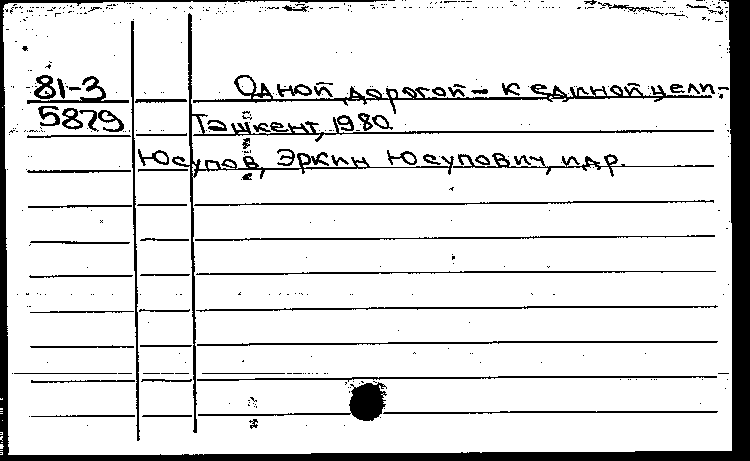 81-3 Одной дорогой - к единой цели.-
5879 Ташкент, 1980.
Юсупов, Эркин Юсупович, и др.